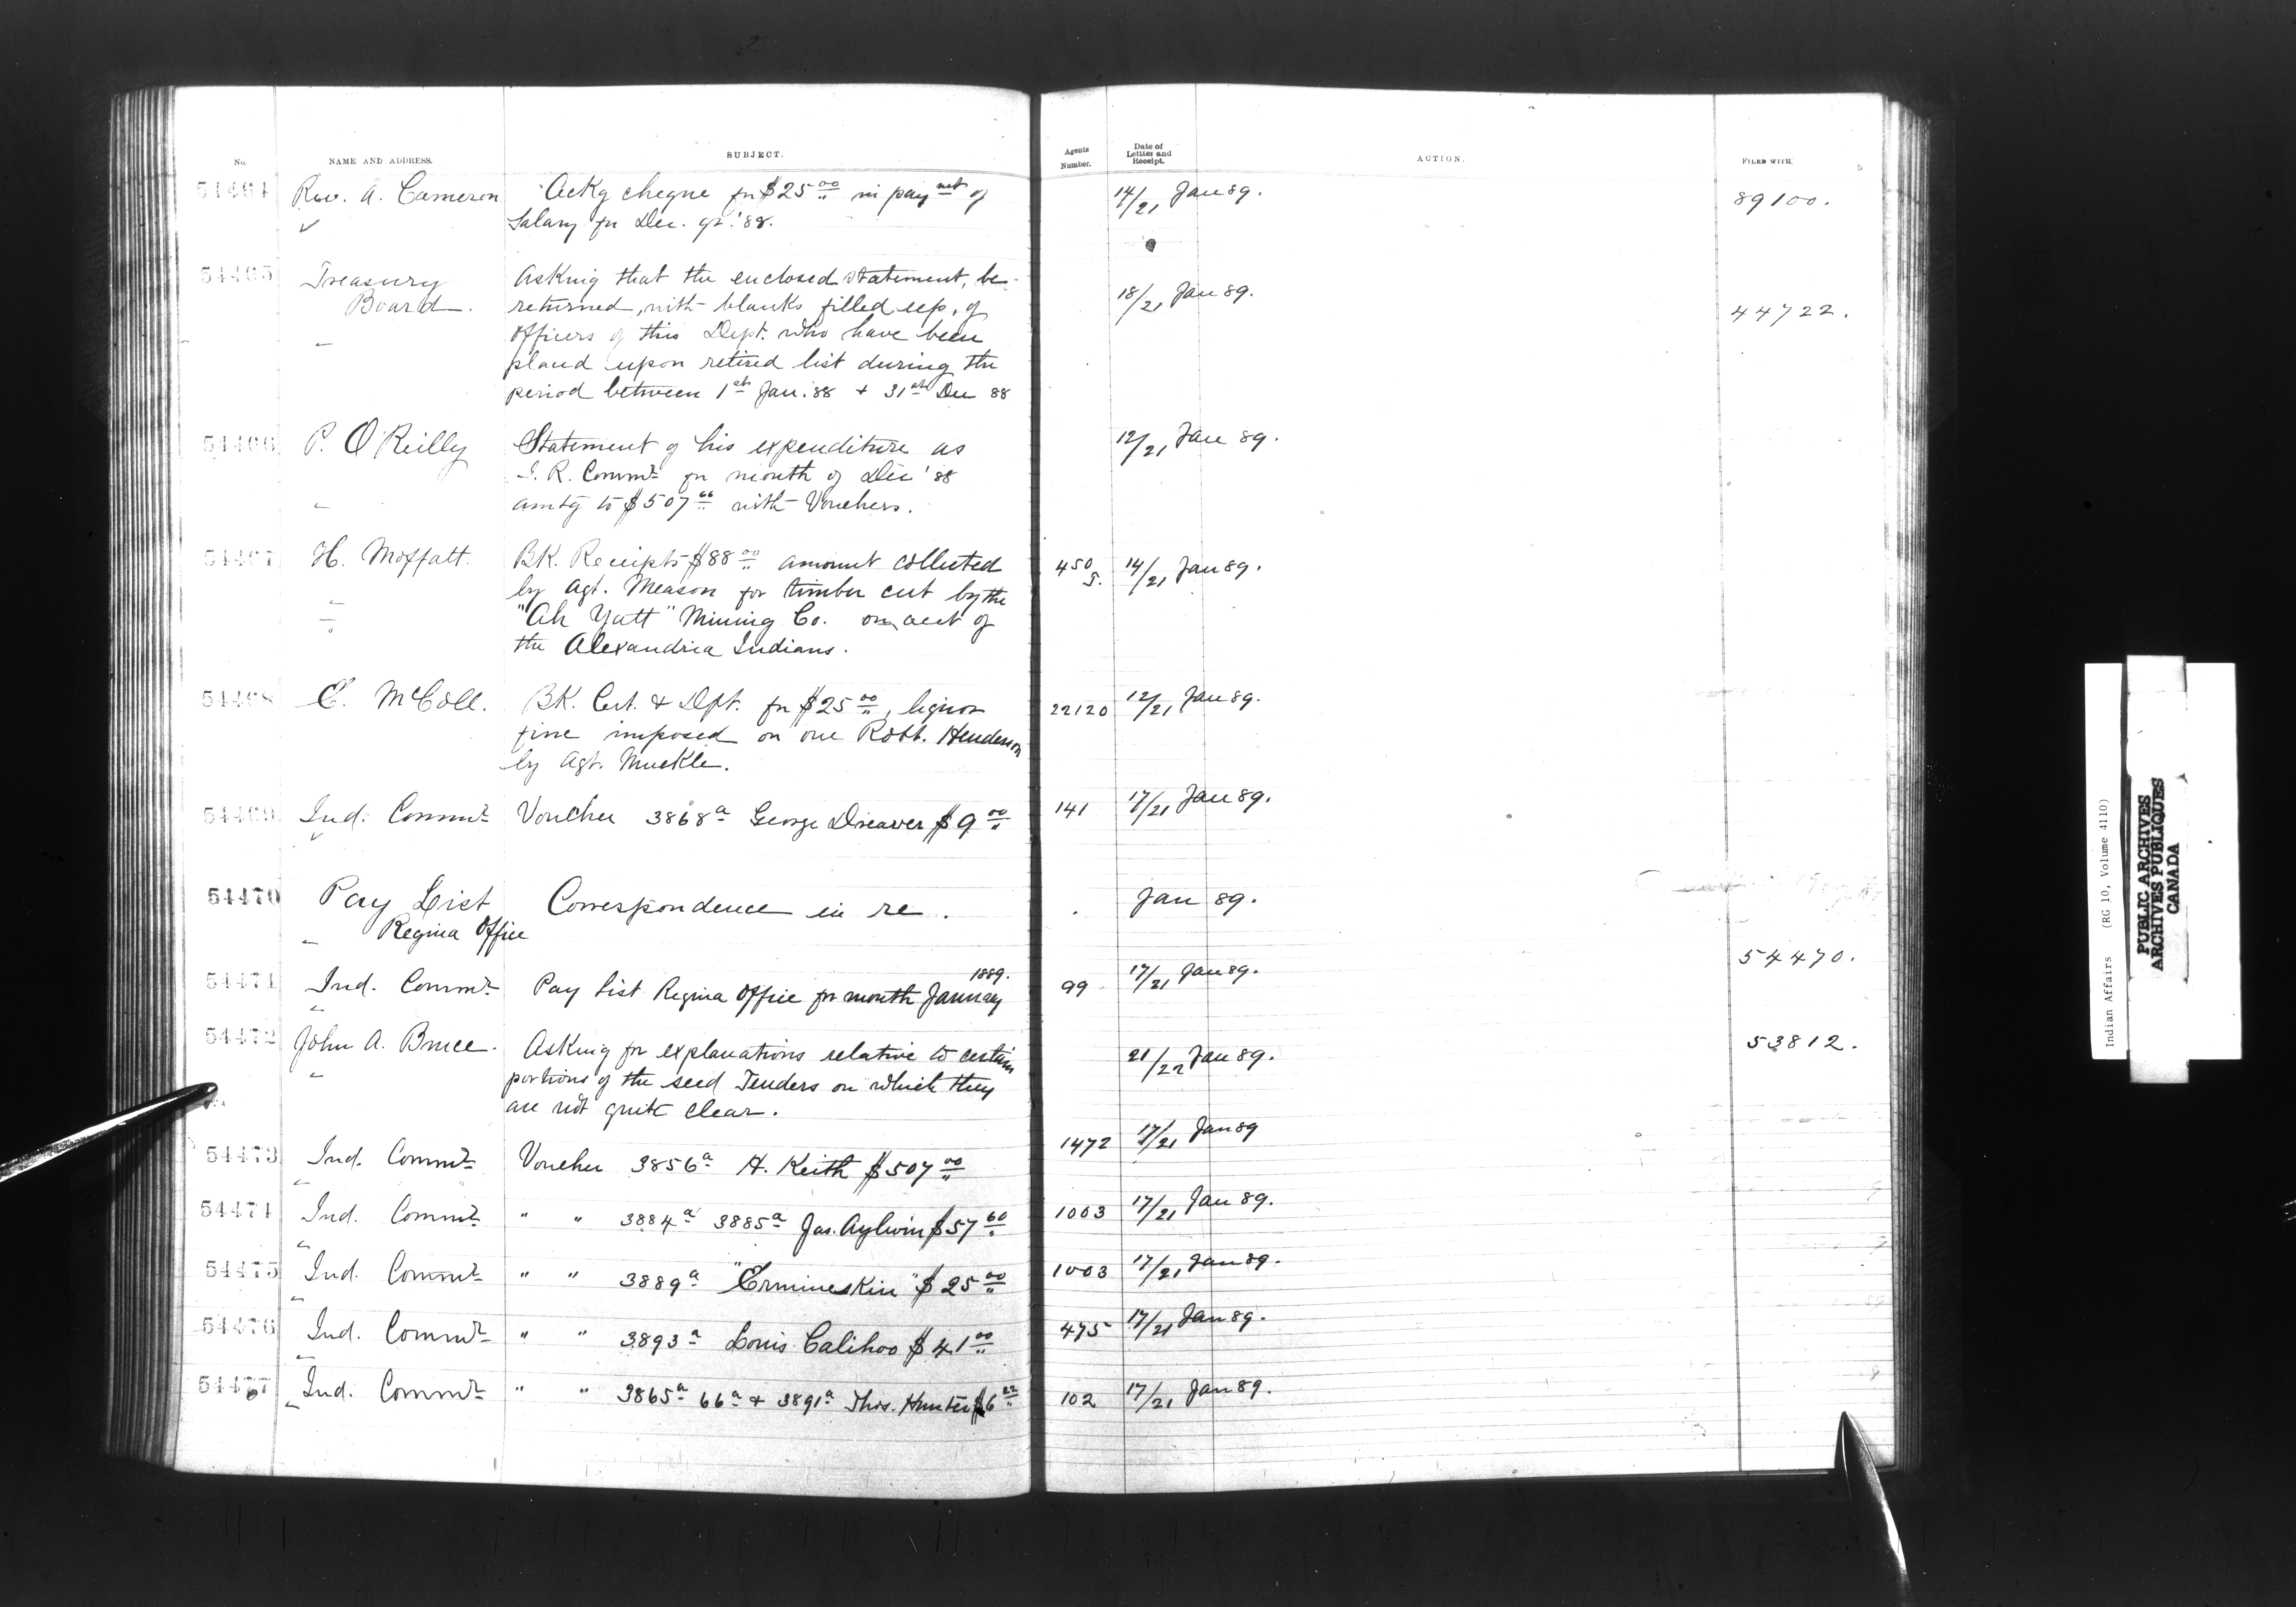 No. NAME AND ADDRESS. SUBJECT. Agents Number. Date of Letter and Receipt. ACTION. FILED WITH.
54464 Rev. A. Cameron Ackg cheque for $25.00 in paymnt of 14/21 Jan 89. 89100.
Salary for Dec. qr. '88.
54465 Treasury Asking that the enclosed statement, be
Board. returned, with blanks filled up, of 18/21 Jan 89. 44722.
Officers of this Dept. who have been
placed upon retired list during the
period between 1st Jan. 88 + 31st Dec 88
54466 P. O'Reilly Statement of his expenditure as 12/21 Jan 89.
I. R. Commr for month of Dec '88
amtg to $507.66 with Vouchers.
54467 H. Moffatt. BK. Receipts $88.00 amount collected 450 5. 14/21 Jan 89.
by Agt. Meason for timber cut by the
"Ah Yatt" Mining Co. on acct of
the Alexandria Indians.
54468 E. McColl. BK. Cert. & Dpt. for $25.00, liquor 22120 12/21 Jan 89.
fine imposed on one Robt. Henderson
by Agt. Muckle.
54469 Ind. Commr Voucher 3868a George Dreaver $9.00 141 17/21 Jan 89.
54470 Pay List Correspondence in re. Jan 89.
Regina Office 54470.
54471 Ind. Commr Pay List Regina Office for month January 1889. 99 17/21 Jan 89.
54472 John A. Bruce. Asking for explanations relative to certain 21/22 Jan 89. 53812.
portions of the seed Tenders on which they
are not quite clear.
54473 Ind. Commr Voucher 3856a H. Keith $507.00 1472 17/21 Jan 89
54474 Ind. Commr " " 3884a 3885a Jas. Aylwin $57.60 1003 17/21 Jan 89.
54475 Ind. Commr " " 3889a "Ermineskin" $25.00 1003 17/21 Jan 89.
54476 Ind. Commr " " 3893a Louis Calihoo $41.00 475 17/21 Jan 89.
54477 Ind. Commr " " 3865a 66a + 3891a Thos. Hunter $6.22 102 17/21 Jan 89.
Indian Affairs (RG 10, Volume 4110)
PUBLIC ARCHIVES
ARCHIVES PUBLIQUES
CANADA